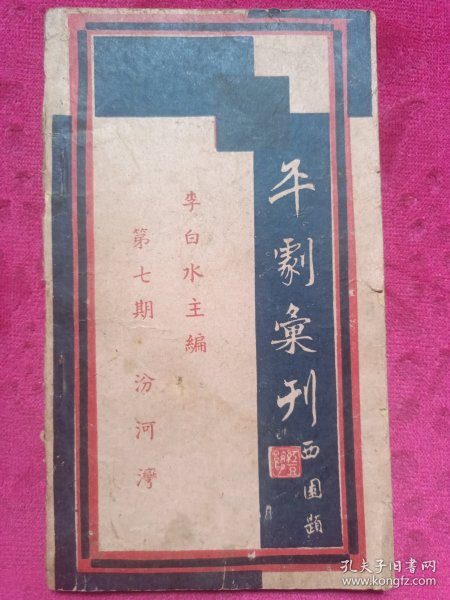 平劇彙刊
西園題
李白水主編
第七期 汾河灣
孔夫子旧书网
www.kongfz.com